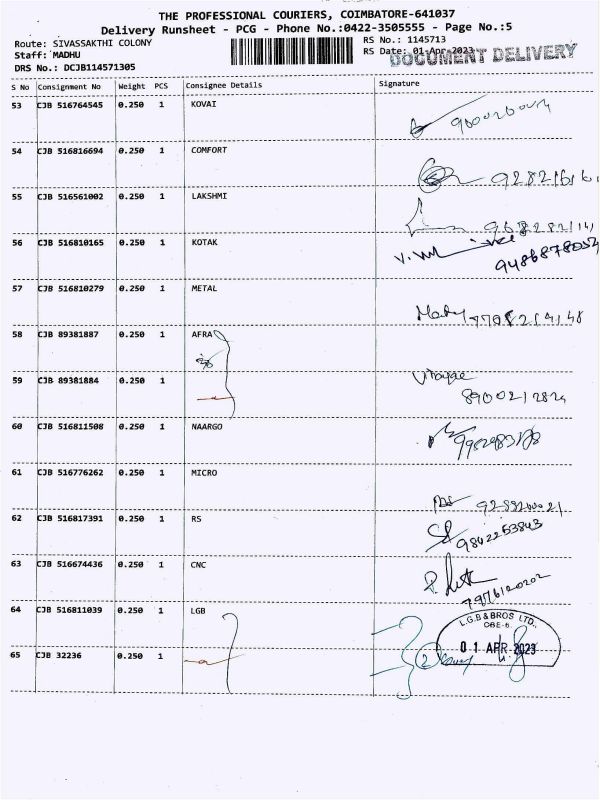 THE PROFESSIONAL COURIERS, COIMBATORE-641037
Delivery Runsheet - PCG - Phone No.:0422-3505555 - Page No.:5
Route: SIVASSAKTHI COLONY
RS No.: 1145713
Staff: MADHU
RS Date: 01-Apr-2023
DOCUMENT DELIVERY
DRS No.: DCJB114571305
S No Consignment No Weight PCS Consignee Details Signature
53 CJB 516764545 0.250 1 KOVAI
54 CJB 516816694 0.250 1 COMFORT
55 CJB 516561002 0.250 1 LAKSHMI
56 CJB 516810165 0.250 1 KOTAK
9486878052
57 CJB 516810279 0.250 1 METAL
58 CJB 89381887 0.250 1 AFRA
59 CJB 89381884 0.250 1
8900212824
60 CJB 516811508 0.250 1 NAARGO
61 CJB 516776262 0.250 1 MICRO
62 CJB 516817391 0.250 1 RS
9842253843
63 CJB 516674436 0.250 1 CNC
64 CJB 516811039 0.250 1 LGB
L.G.B & BROS LTD.,
CBE-6.
01 APR 2023
65 CJB 32236 0.250 1